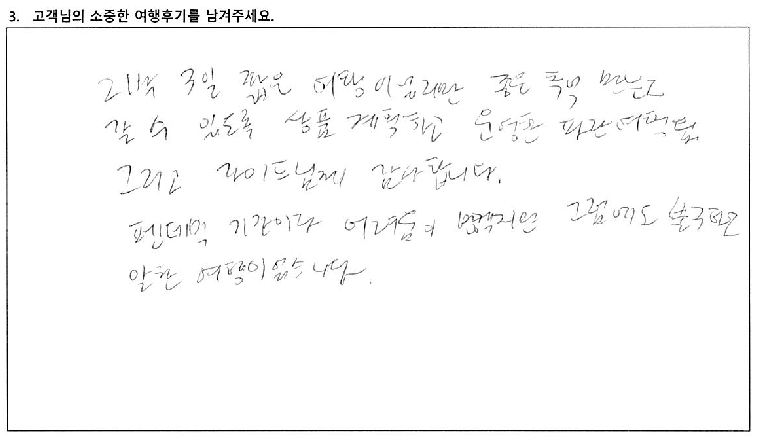 3. 고객님의 소중한 여행후기를 남겨주세요.
2박 3일 짧은 여행이었지만 좋은 추억 만들고
갈 수 있도록 상품 계획하고 운영한 여행팀,
그리고 가이드님께 감사합니다.
펜데믹 기간이라 어려움이 그럼에도 불구하고
알찬 여행이었습니다.